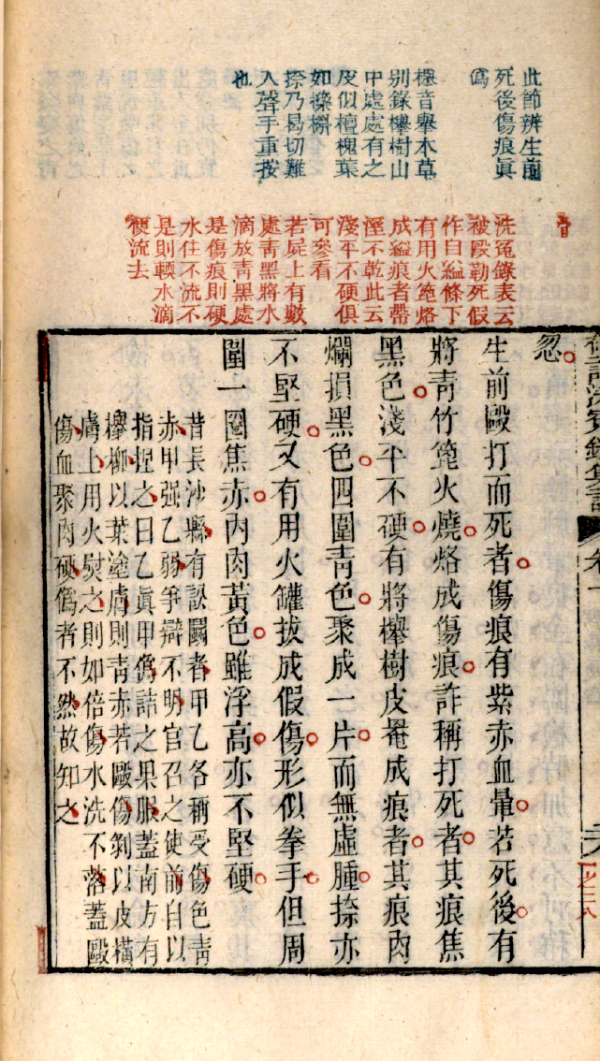 此節辨生前
死後傷痕眞
僞
欅音舉本草
別錄欅樹山
中處處有之
皮似檀槐葉
如櫟槲
捺乃曷切難
入聲手重按
也
洗冤錄表云
被毆勒死假
作自縊條下
有用火箆烙
成縊痕者帶
溼不乾此云
淺平不硬俱
可參看
若屍上有數
處靑黑將水
滴放靑黑處
是傷痕則硬
水住不流不
是則輭水滴
便流去
洗冤錄集證
忽
生前毆打而死者傷痕有紫赤血暈若死後有
將靑竹箆火燒烙成傷痕詐稱打死者其痕焦
黑色淺平不硬有將欅樹皮罨成痕者其痕內
爛損黑色四圍靑色聚成一片而無虛腫捺亦
不堅硬又有用火罐拔成假傷形似拳手但周
圍一圈焦赤內肉黃色雖浮高亦不堅硬
昔長沙縣有訟鬬者甲乙各稱受傷色靑
赤甲强乙弱爭辯不明官召之使前自以
指捏之曰乙眞甲僞詰之果服蓋南方有
欅柳以葉塗膚則靑赤若毆傷剝以皮橫
膚上用火熨之則如倍傷水洗不落蓋毆
傷血聚肉硬僞者不然故知之